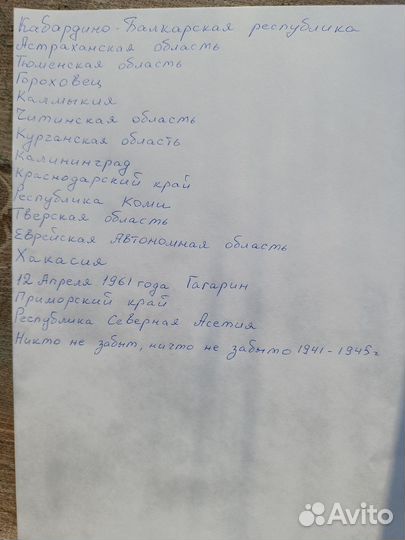 Кабардино-Балкарская республика
Астраханская область
Тюменская область
Гороховец
Калмыкия
Читинская область
Курганская область
Калининград
Краснодарский край
Республика Коми
Тверская область
Еврейская Автономная область
Хакасия
12 Апреля 1961 года Гагарин
Приморский край
Республика Северная Асетия
Никто не забыт, ничто не забыто 1941-1945г
Avito